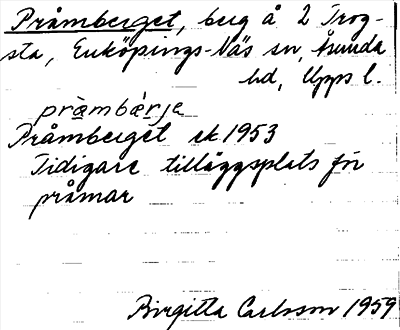 Pråmberget, berg å 2 Trog-
sta, Enköpings-Näs sn, Åsunda
hd, Upps l.
pràmbærje
Pråmberget ek 1953
Tidigare tilläggsplats för
pråmar
Birgitta Carlsson 1959